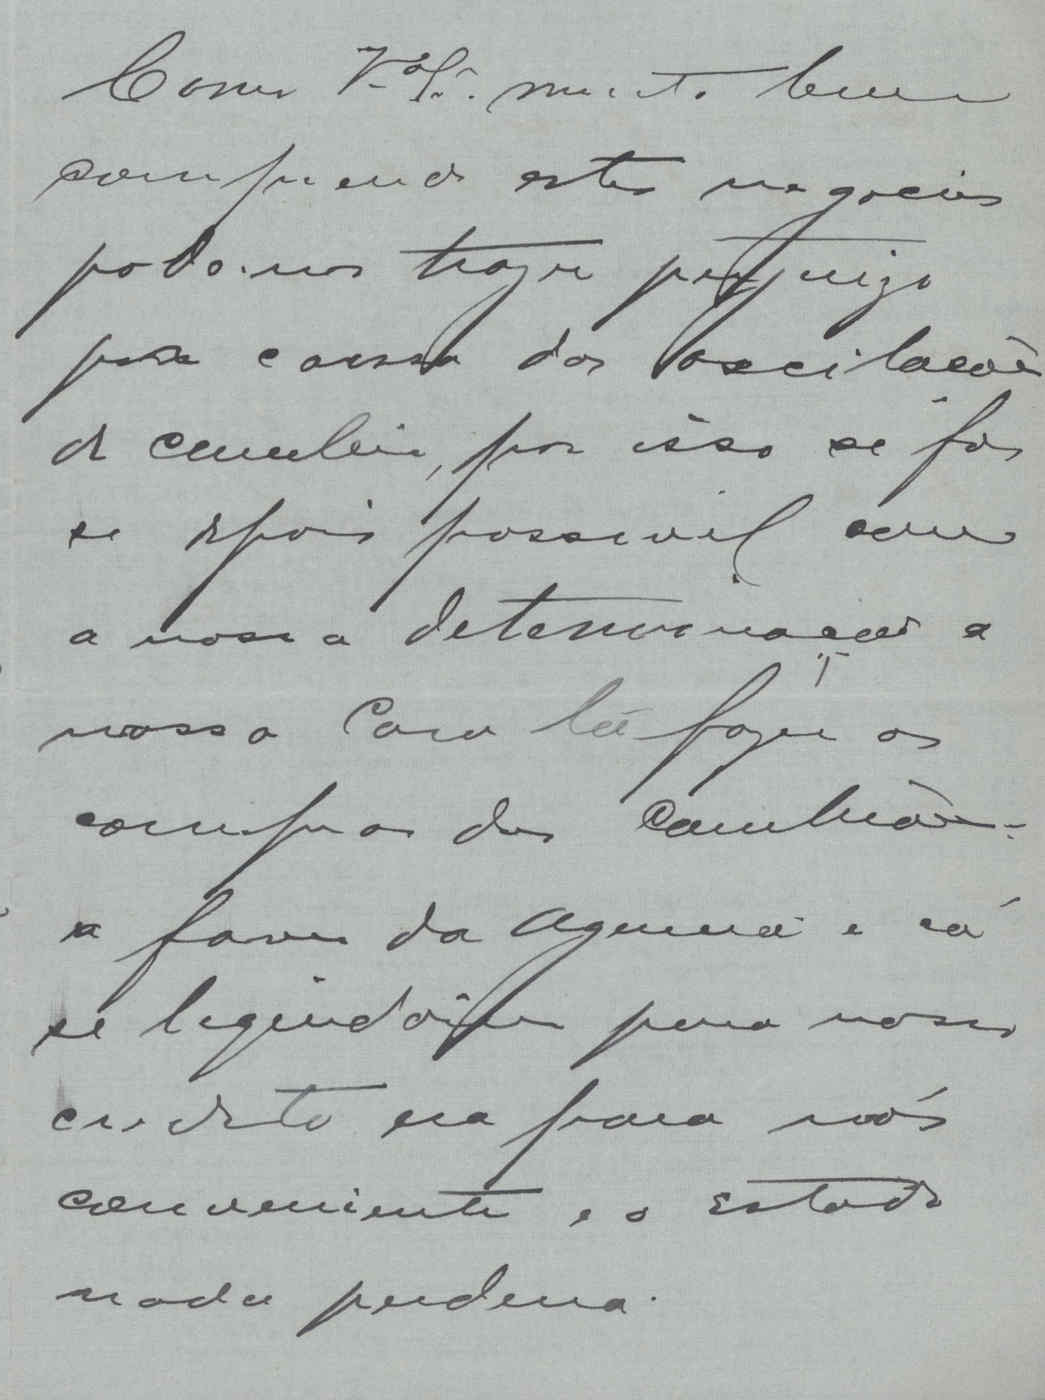 Como V. Sª. muito bem
comprende estes negocios
pode-nos trazer perjuizo
por causa das oscilacões
de cambio, por isso se fos
se depois possivel com
a nossa determinação a
nossa Casa lá fazer as
compras das Cambiões
a favor da Agencia e cá
se
para nosso
credito era para nós
conveniente e o Estado
nada perderia.